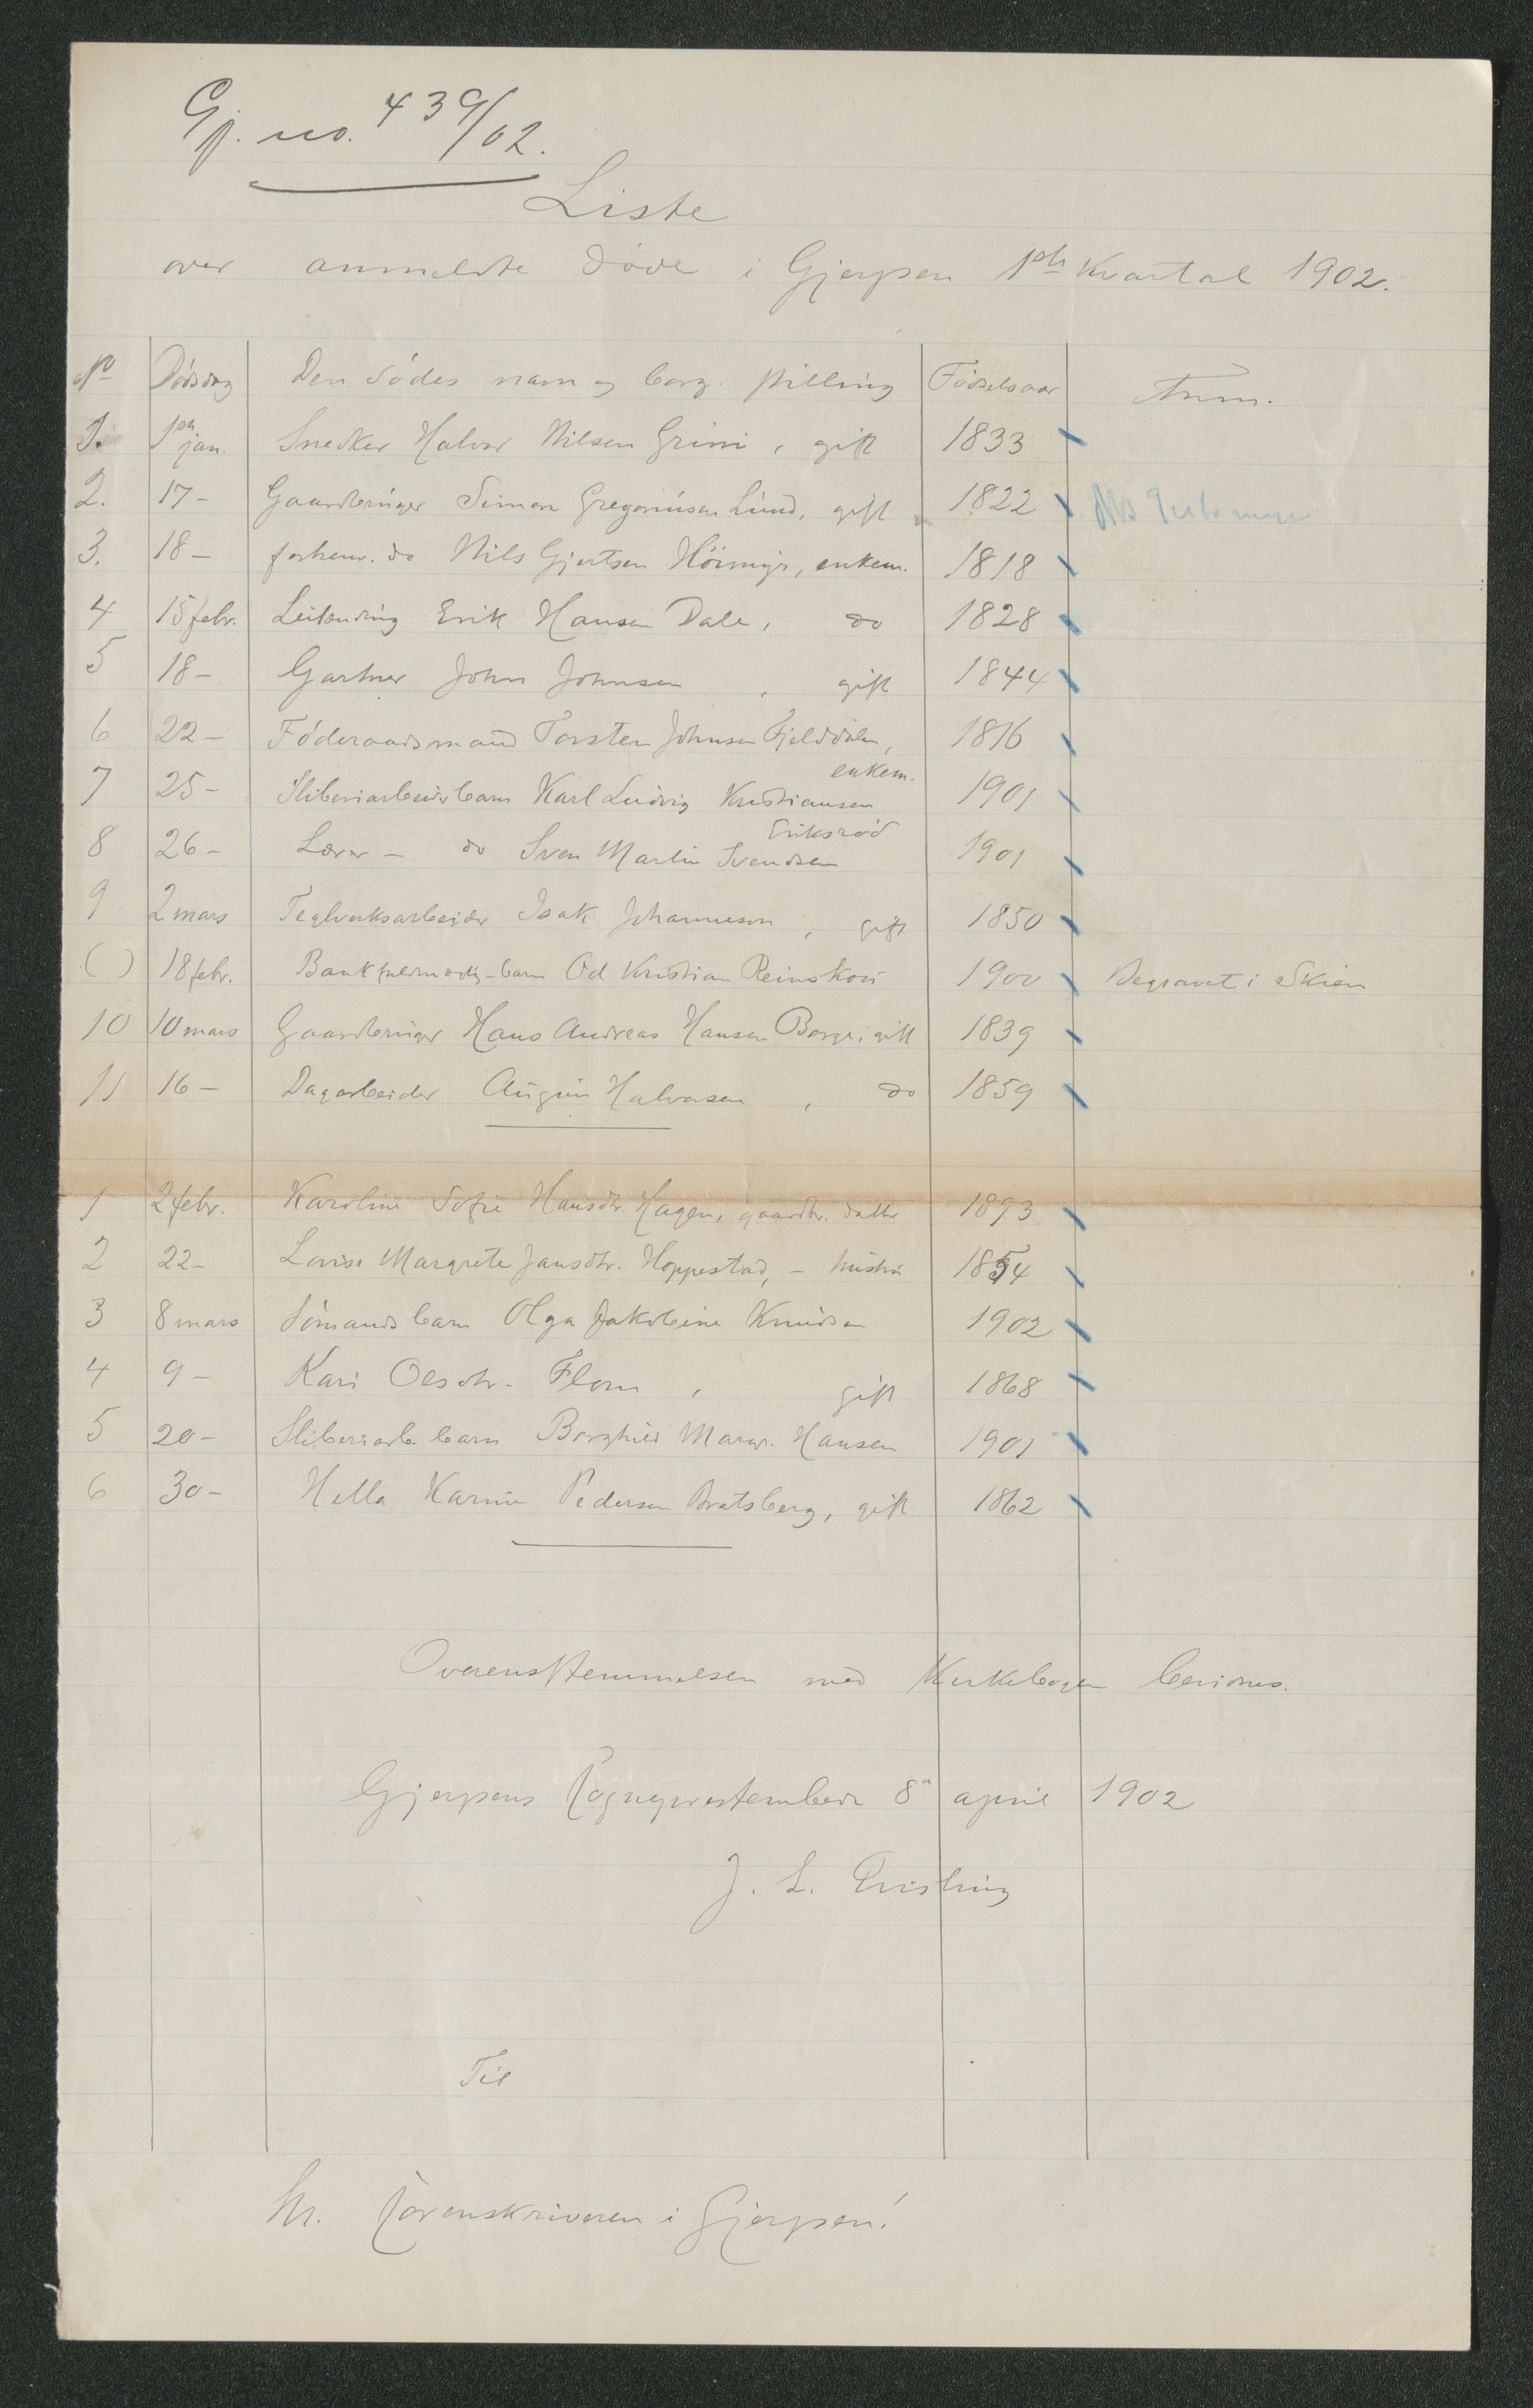 Gj. no. 439/02.
Liste
over anmeldte døde i Gjerpen 1ste kvartal 1902.
No Dødsdag Den dødes navn og borg. stilling Fødselsaar Anm.
1. 1ste jan. Snedker Halvor Nilsen Grini, gift 1833
2. 17 - Gaardbruger Simon Gregoriusen Lund, gift 1822
3. 18 - forhenv. do Nils Gjertsen Höimyr, enkem. 1818
4 15 febr. Leilending Erik Hansen Dale, do 1828
5 18 - Gartner John Johnsen, gift 1844
6 22 - Föderaadsmand Torsten Johnsen Fjelddalen, 1816
enkem.
7 25 - Sliberiarbeiderbarn Karl Ludvig Kristiansen 1901
Eriksrød
8 26 - Lærer - do Sven Martin Svendsen 1901
9 2 mars Teglverksarbeider Isak Johannesen, gift 1850
( ) 18 febr. Bankfuldmægtig-barn Od Kristian Reinskou 1900 Begravet i Skien
10 10 mars Gaardbruger Hans Andreas Hansen Borge, gift 1839
11 16 - Dagarbeider Halvorsen, do 1859
1 2 febr. Karoline Sofie Hansdtr. Hagen, gaardbr. datter 1893
2 22 - Lovise Margrete Jansdtr. Hoppestad, - hustru 1854
3 8 mars Sömandsbarn Olga Jakobine Knudsen 1902
4 9 - Kari Olsdtr. Flom, gift 1868
5 20 - Sliberiarb. barn Borghild Marg. Hansen 1901
6 30 - Hella Karine Pedersen Bratsberg, gift 1862
Overensstemmelsen med Kirkebogen bevidnes.
Gjerpens Sogneprestembede 8de april 1902
J. L. Qvisling
Til
Hr. Sorenskriveren i Gjerpen!